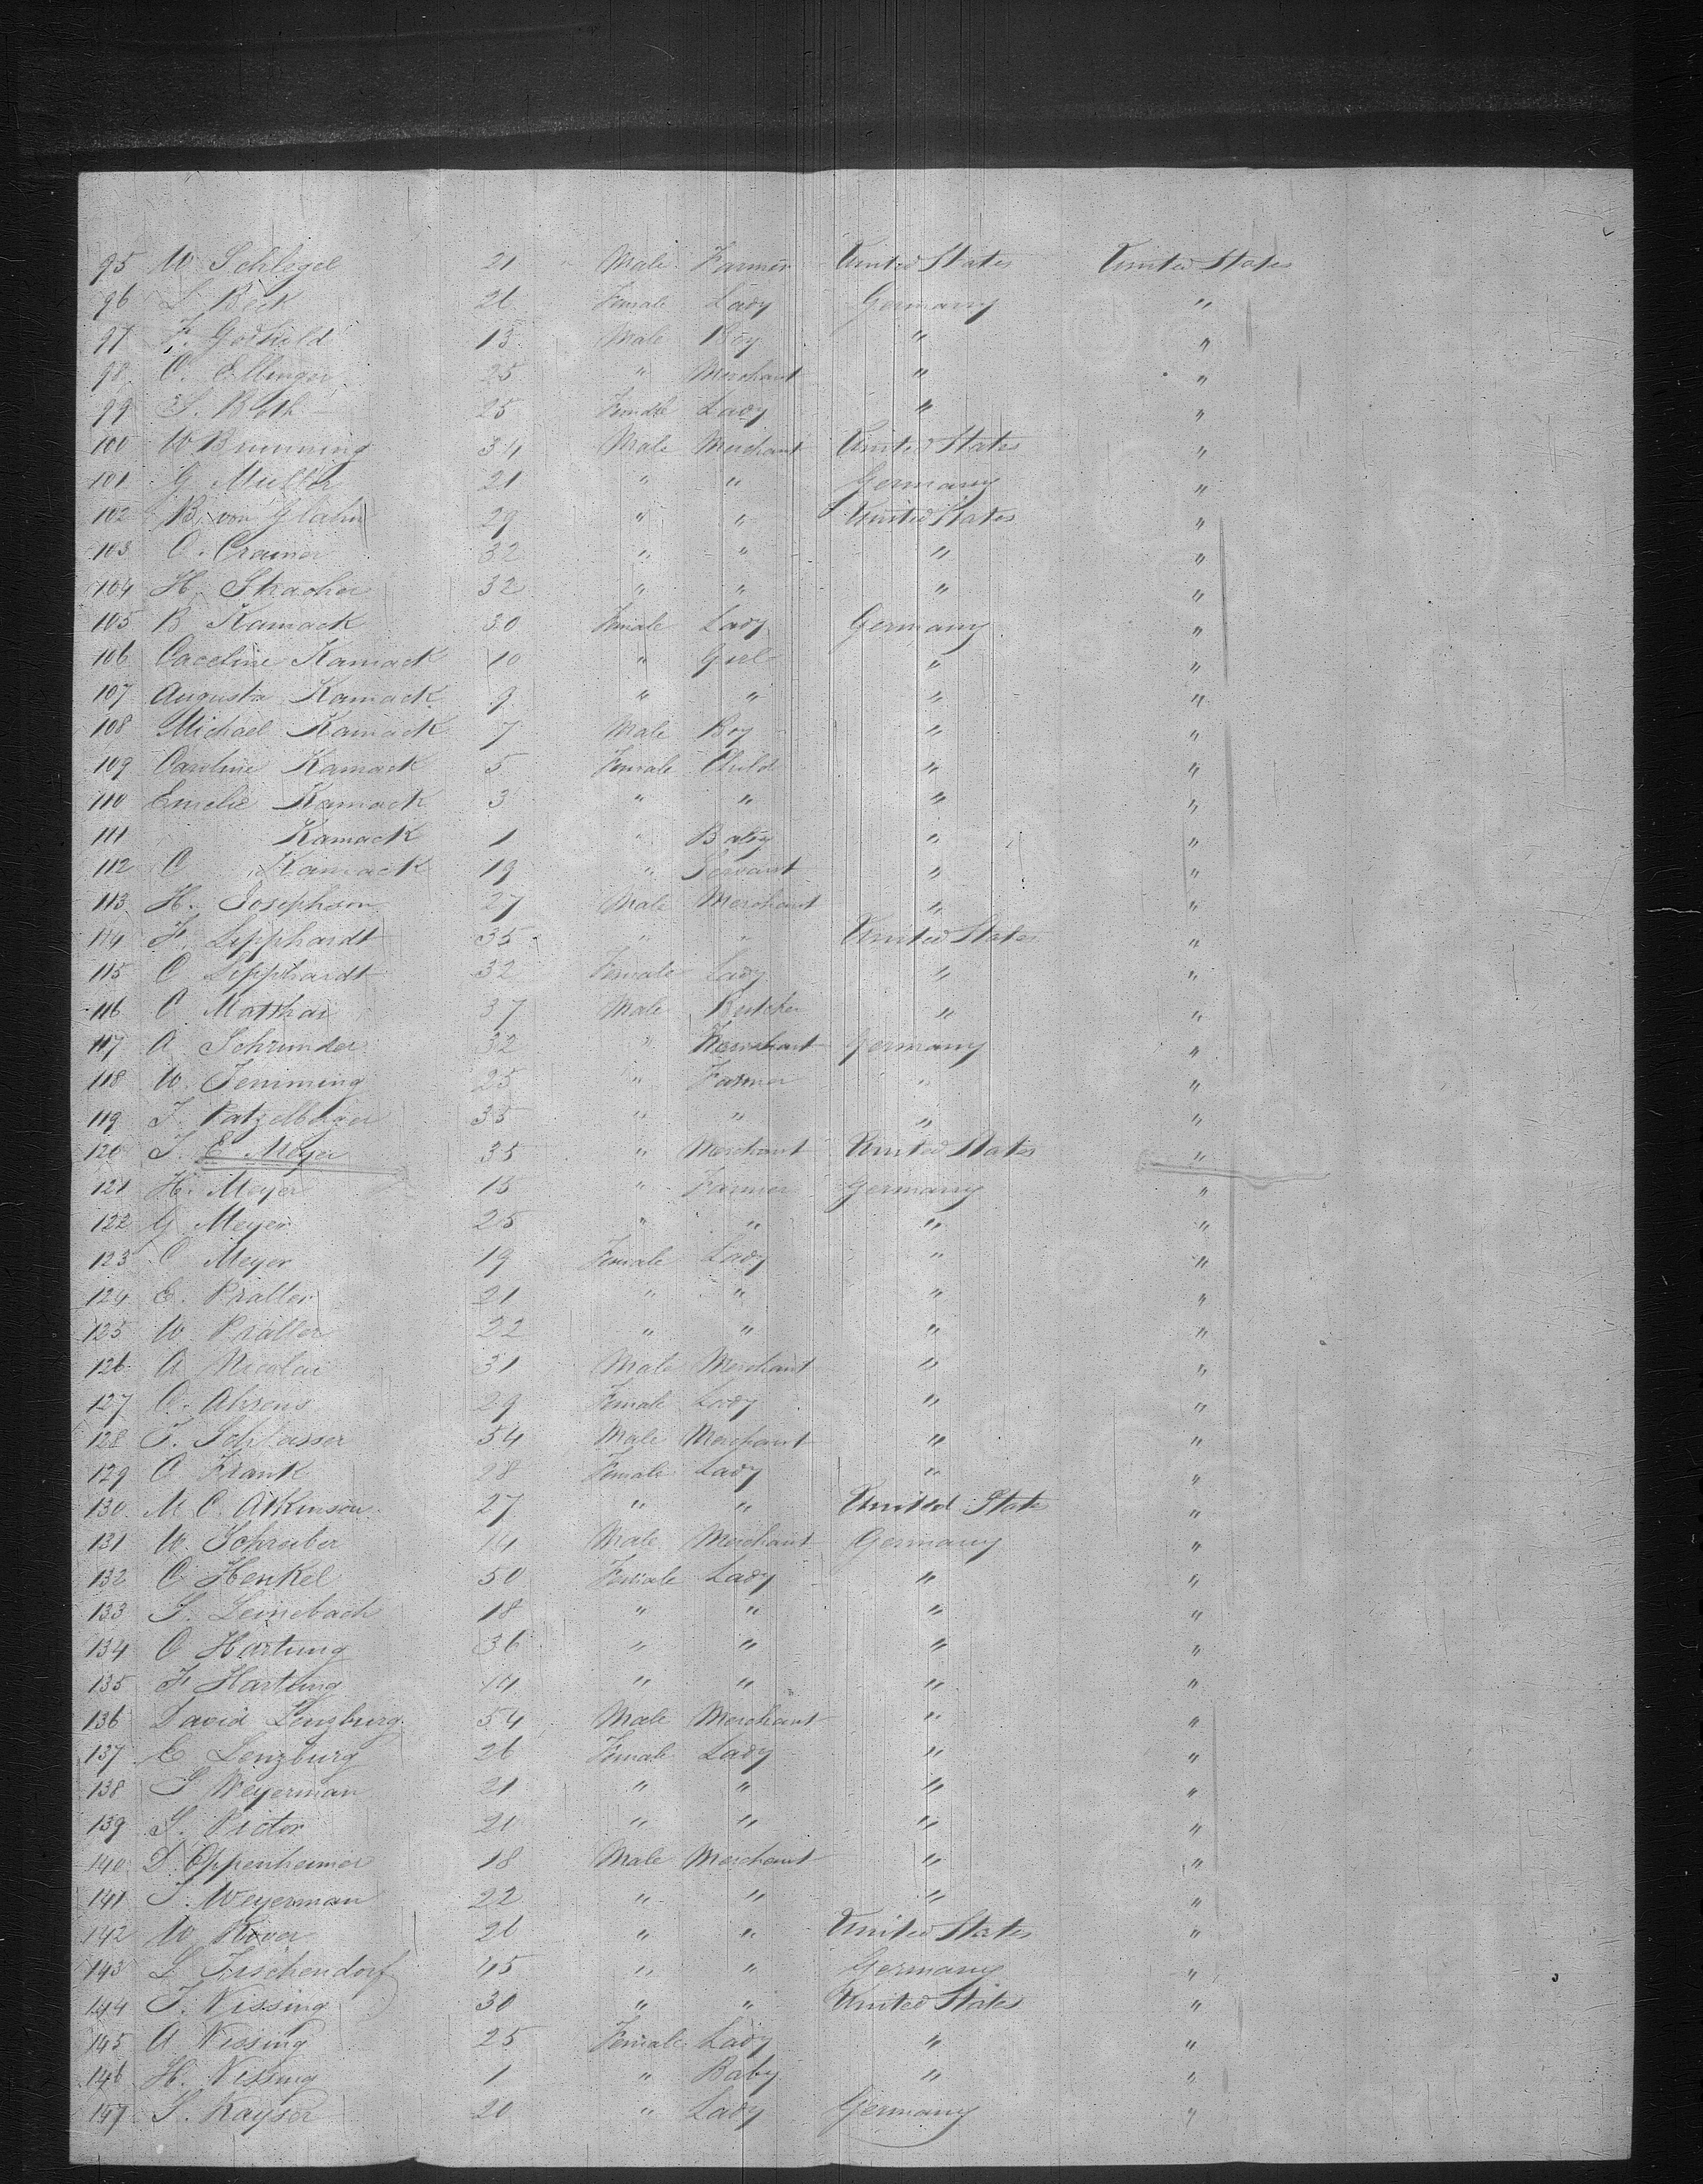 95 W Schlegel 21 Male Farmer United States United States
96 L Bock 26 Female Lady Germany "
97 F. Gothild 13 Male Boy " "
98 C. Ellinger 25 " Merchant " "
99 S. Roth 25 Female Lady " "
100 W Brunning 34 Male Merchant United States "
101 G Muller 21 " " Germany "
102 B. von Glahn 29 " " United States "
103 C. Cramer 32 " " " "
104 H. Stracher 32 " " " "
105 B Kamack 30 Female Lady Germany "
106 Caceline Kamack 10 " Girl " "
107 Augusta Kamack 9 " " " "
108 Michael Kamack 7 Male Boy " "
109 Caroline Kamack 5 Female Child " "
110 Emelie Kamack 3 " " " "
111 Kamack 1 " Baby " "
112 C Kamack 19 " Servant " "
113 H. Josephson 27 Male Merchant " "
114 F. Lipphardt 35 " " United States "
115 C Lipphardt 32 Female Lady " "
116 C Matthai 37 Male Butcher " "
117 A Schrunder 32 " Merchant Germany "
118 W. Temming 25 " Farmer " "
119 J. Katzelberger 35 " " " "
120 J. E. Meyer 35 " Merchant United States "
121 H. Meyer 15 " Farmer Germany "
122 G Meyer 25 " " " "
123 C Meyer 19 Female Lady " "
124 E. Praller 21 " " " "
125 W. Praller 22 " " " "
126 A Nicolai 31 Male Merchant " "
127 C. Ahrens 29 Female Lady " "
128 T. Schlasser 54 Male Merchant " "
129 C Frank 28 Female Lady " "
130 M C. Atkinson 27 " " United State "
131 W. Schreiber 14 Male Merchant Germany "
132 C Henkel 50 Female Lady " "
133 S. Leinebach 18 " " " "
134 C Hartung 36 " " " "
135 F Hartung 14 " " " "
136 David Lenzburg 54 Male Merchant " "
137 E Lenzburg 26 Female Lady " "
138 S Weyerman 21 " " " "
139 G. Victor 21 " " " "
140 D. Oppenheimer 18 Male Merchant " "
141 J. Weyerman 22 " " " "
142 W. Kover 26 " " United States "
143 L Tischendorf 45 " " Germany "
144 J. Nissing 30 " " United States "
145 A Nissing 25 Female Lady " "
146 H. Nissing 1 " Baby " "
147 S. Kayser 20 " Lady Germany "